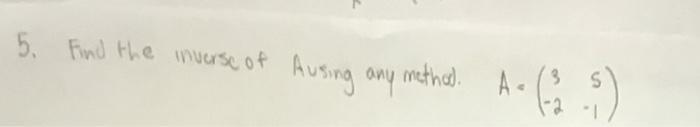 5. Find the inverse of A using any method. A = (3 5
-2 -1)